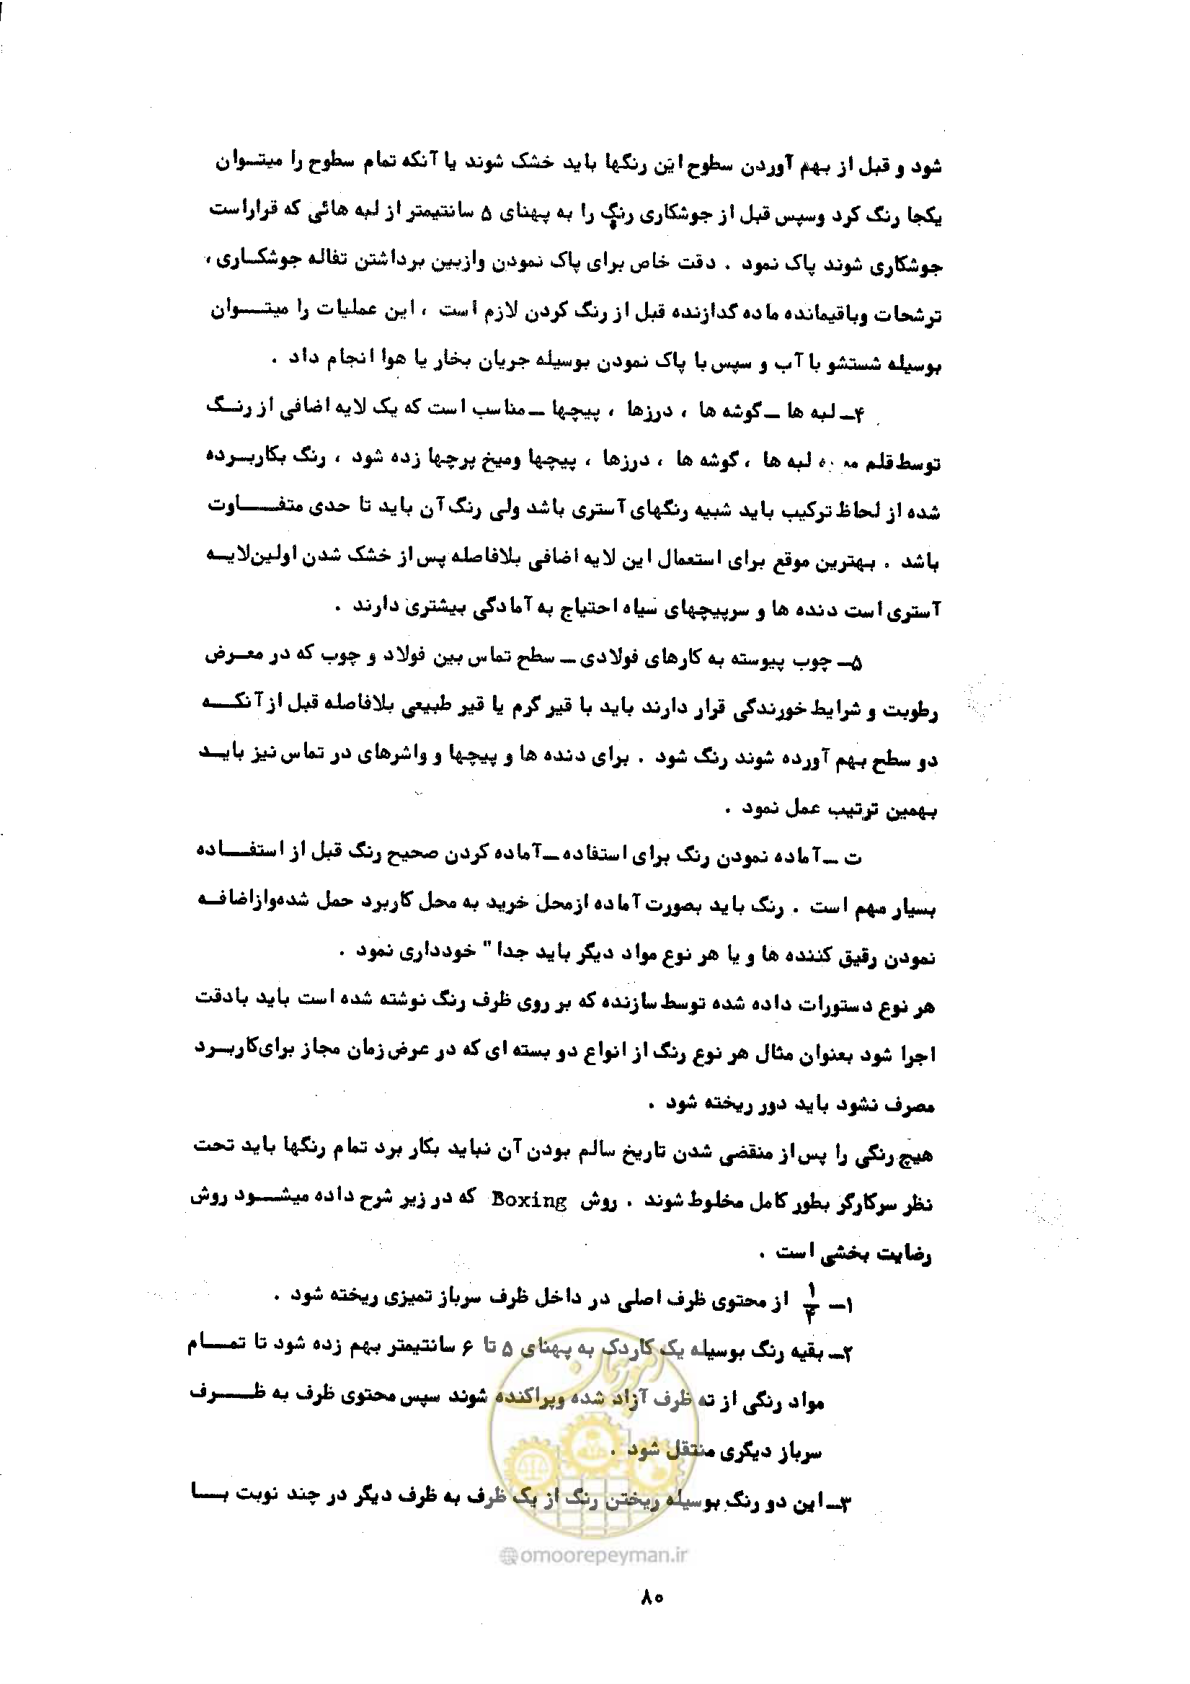 شود و قبل از بهم آوردن سطوح این رنگها باید خشک شوند یا آنکه تمام سطوح را میتوان
یکجا رنگ کرد وسپس قبل از جوشکاری رنگ را به پهنای ۵ سانتیمتر از لبه هائی که قراراست
جوشکاری شوند پاک نمود . دقت خاص برای پاک نمودن وازبین برداشتن تفاله جوشکاری ،
ترشحات وباقیمانده ماده گدازنده قبل از رنگ کردن لازم است ، این عملیات را میتوان
بوسیله شستشو با آب و سپس با پاک نمودن بوسیله جریان بخار یا هوا انجام داد .
۴ـ لبه ها ـ گوشه ها ، درزها ، پیچها ـ مناسب است که یک لایه اضافی از رنگ
توسط قلم لبه ها ، گوشه ها ، درزها ، پیچها ومیخ پرچها زده شود ، رنگ بکاربرده
شده از لحاظ ترکیب باید شبیه رنگهای آستری باشد ولی رنگ آن باید تا حدی متفاوت
باشد . بهترین موقع برای استعمال این لایه اضافی بلافاصله پس از خشک شدن اولین لایه
آستری است دنده ها و سرپیچهای سیاه احتیاج به آمادگی بیشتری دارند .
۵ـ چوب پیوسته به کارهای فولادی ـ سطح تماس بین فولاد و چوب که در معرض
رطوبت و شرایط خورندگی قرار دارند باید با قیر گرم یا قیر طبیعی بلافاصله قبل از آنکه
دو سطح بهم آورده شوند رنگ شود . برای دنده ها و پیچها و واشرهای در تماس نیز باید
بهمین ترتیب عمل نمود .
ت ـ آماده نمودن رنگ برای استفاده ـ آماده کردن صحیح رنگ قبل از استفاده
بسیار مهم است . رنگ باید بصورت آماده ازمحل خرید به محل کاربرد حمل شده‌وازاضافه
نمودن رقیق کننده ها و یا هر نوع مواد دیگر باید جدا" خودداری نمود .
هر نوع دستورات داده شده توسط سازنده که بر روی ظرف رنگ نوشته شده است باید بادقت
اجرا شود بعنوان مثال هر نوع رنگ از انواع دو بسته ای که در عرض زمان مجاز برای‌کاربرد
مصرف نشود باید دور ریخته شود .
هیچ رنگی را پس از منقضی شدن تاریخ سالم بودن آن نباید بکار برد تمام رنگها باید تحت
نظر سرکارگر بطور کامل مخلوط شوند . روش Boxing که در زیر شرح داده میشود روش
رضایت بخشی است .
۱ـ ۱/۴ از محتوی ظرف اصلی در داخل ظرف سرباز تمیزی ریخته شود .
۲ـ بقیه رنگ بوسیله یک کاردک به پهنای ۵ تا ۶ سانتیمتر بهم زده شود تا تمام
مواد رنگی از ته ظرف آزاد شده وپراکنده شوند سپس محتوی ظرف به ظرف
سرباز دیگری منتقل شود .
۳ـ این دو رنگ بوسیله ریختن رنگ از یک ظرف به ظرف دیگر در چند نوبت با
امور پیمان
@omoorepeyman.ir
۸۰